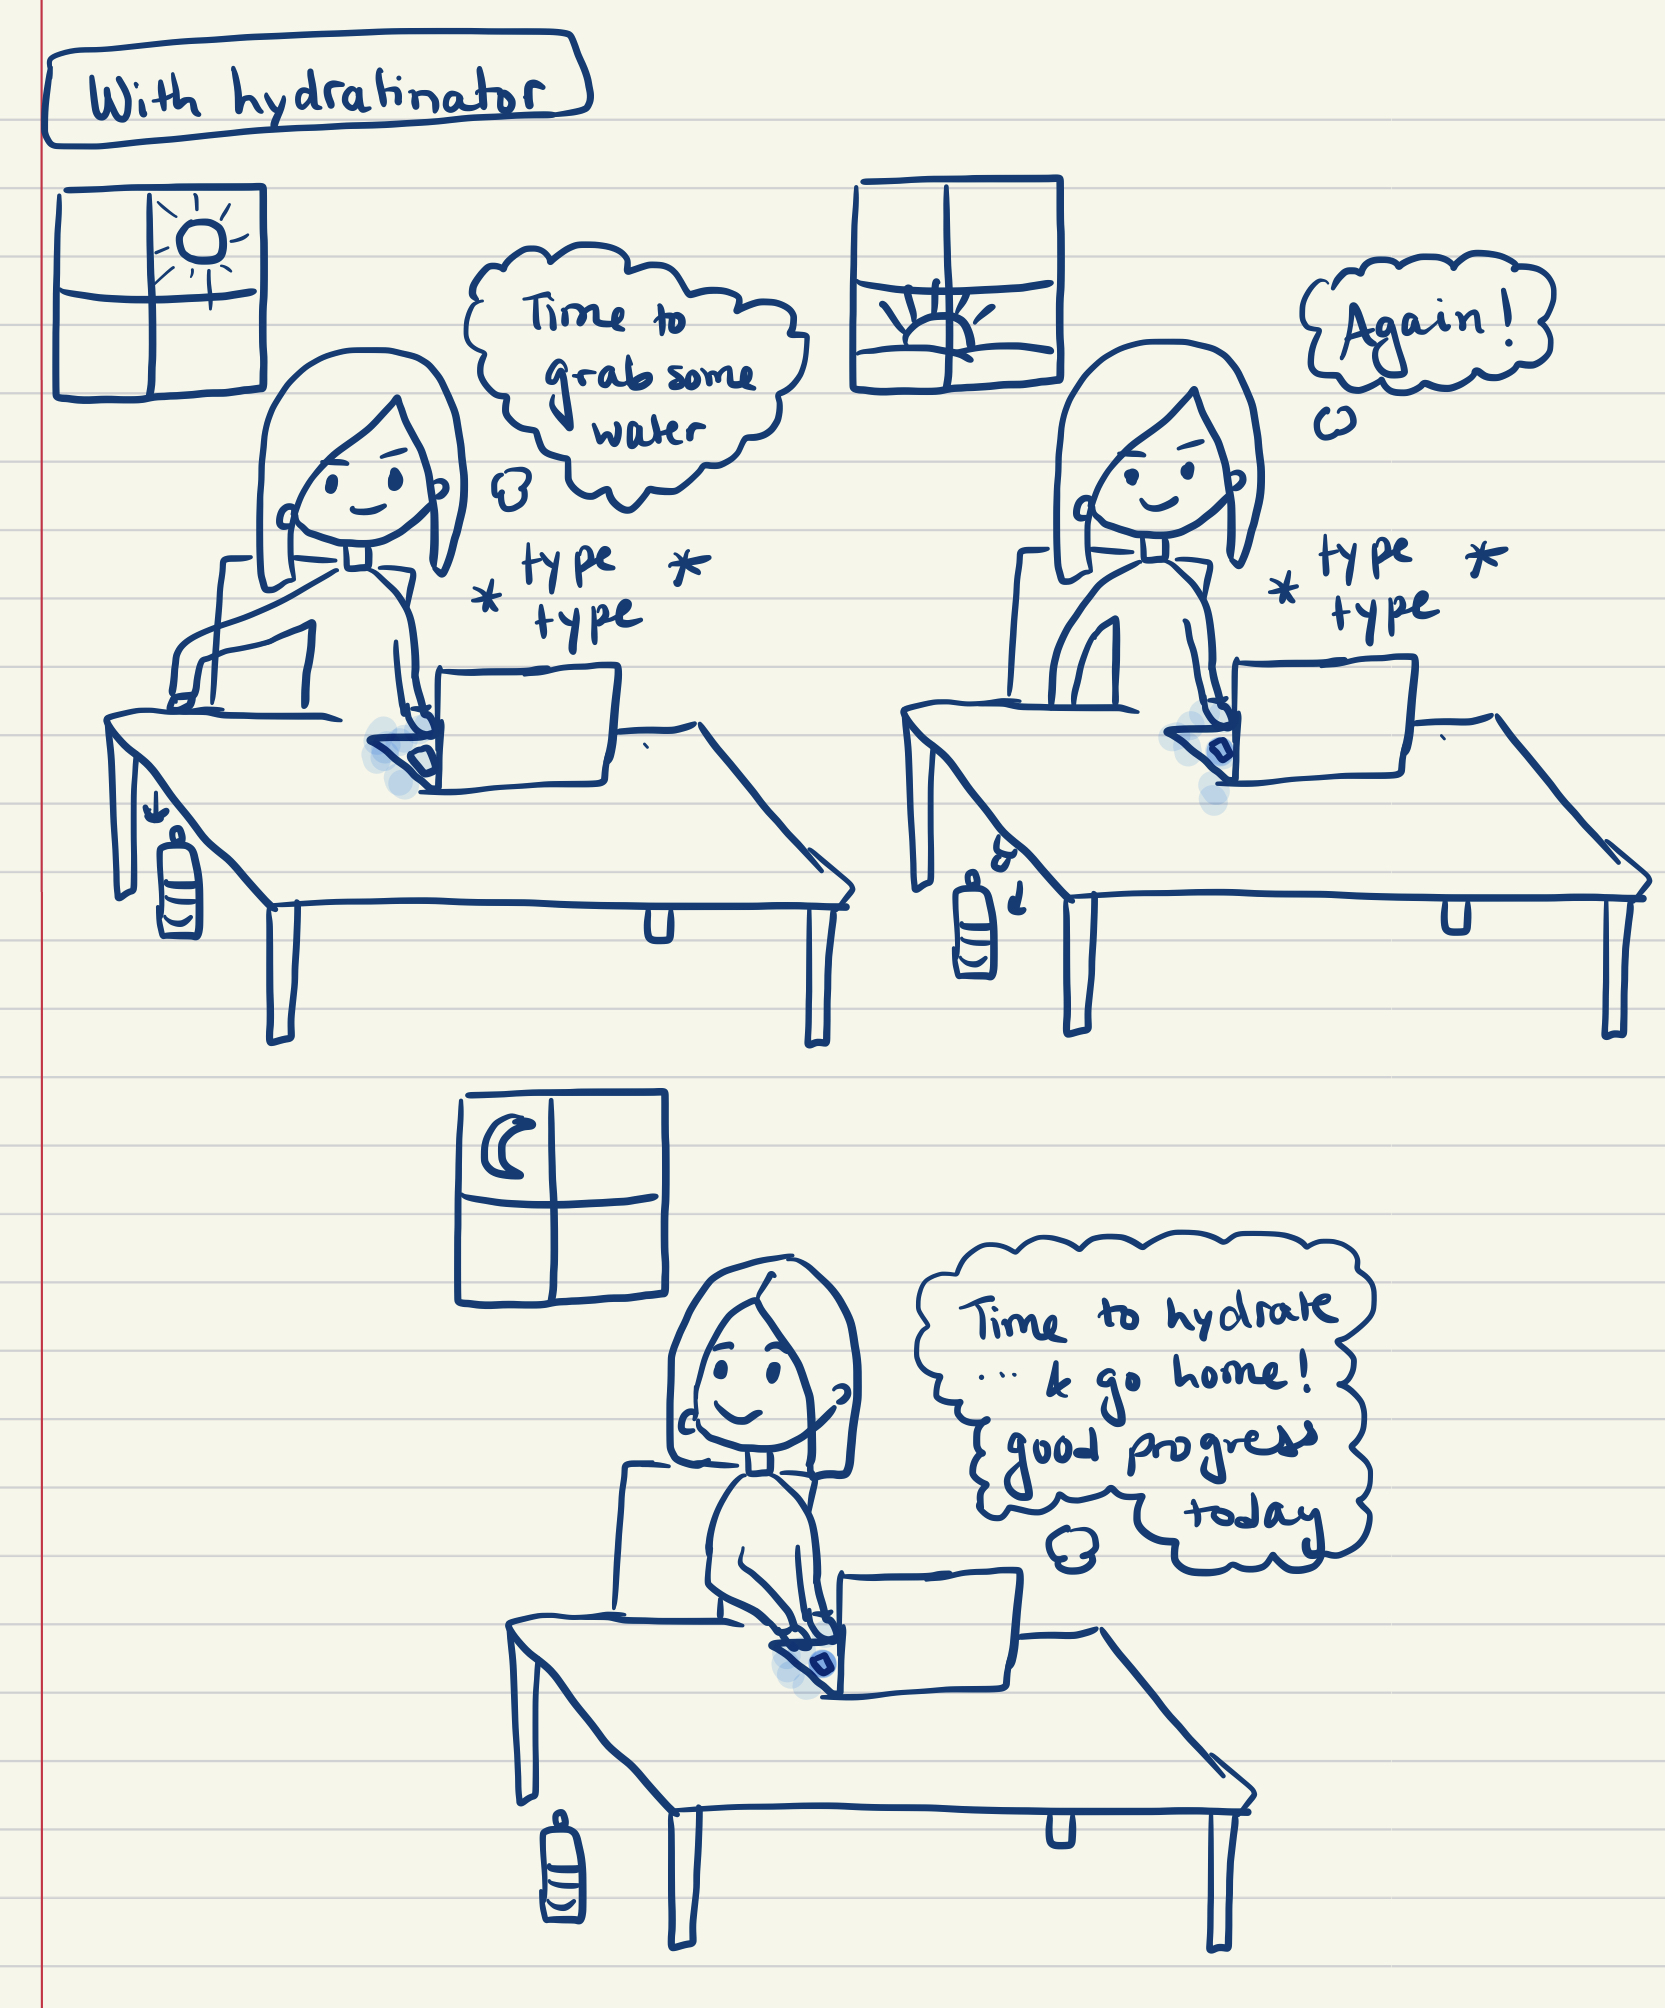 With hydratinator
Time to
grab some
water
* type *
type
Again!
* type *
type
Time to hydrate
... & go home!
good progress
today